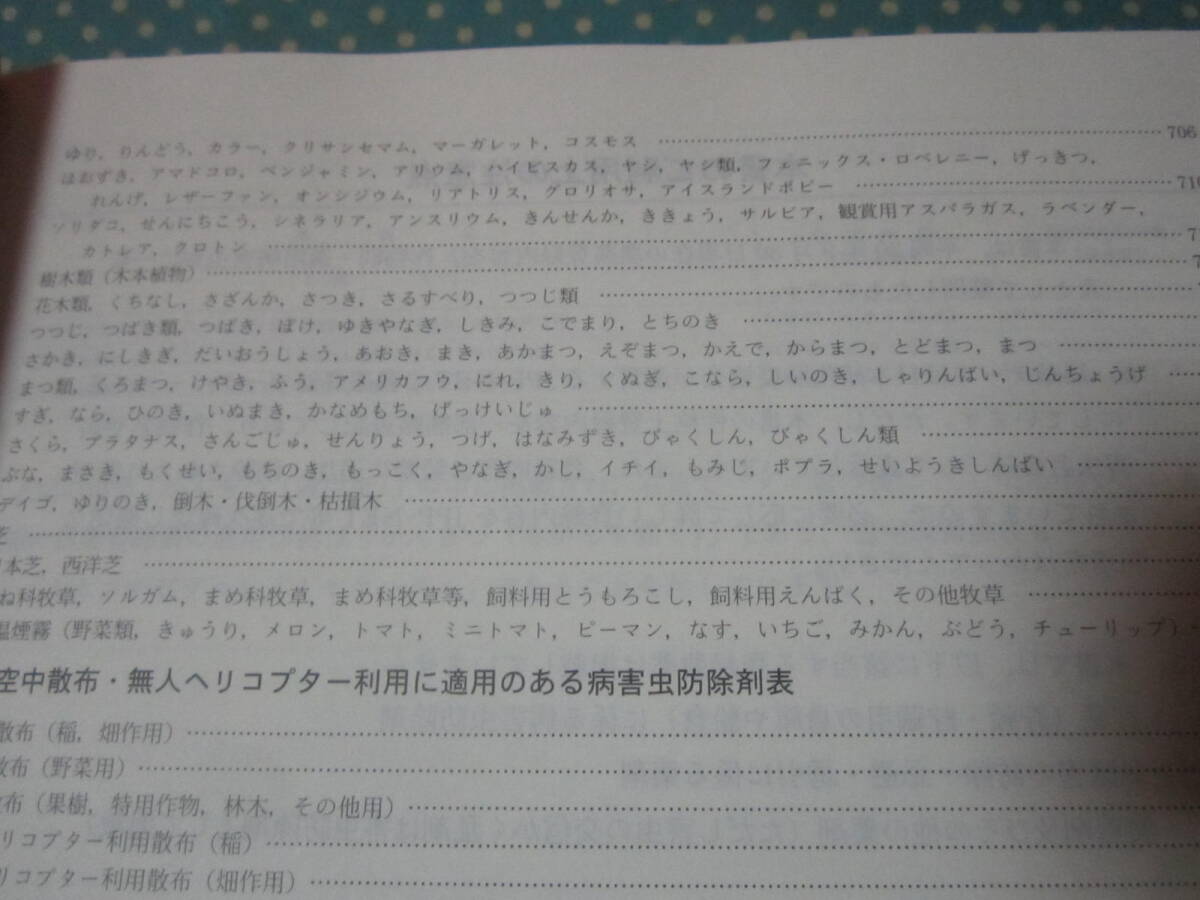 ゆり，りんどう，カラー，クリサンセマム，マーガレット，コスモス ……… 706
ほおずき，アマドコロ，ベンジャミン，アリウム，ハイビスカス，ヤシ，ヤシ類，フェニックス・ロベレニー，げっきつ，
れんげ，レザーファン，オンシジウム，リアトリス，グロリオサ，アイスランドポピー ………
ソリダコ，せんにちこう，シネラリア，アンスリウム，きんせんか，ききょう，サルビア，観賞用アスパラガス，ラベンダー，
カトレア，クロトン ………
樹木類（木本植物）………
花木類，くちなし，さざんか，さつき，さるすべり，つつじ類 ………
つつじ，つばき類，つばき，ぼけ，ゆきやなぎ，しきみ，こでまり，とちのき ………
さかき，にしきぎ，だいおうしょう，あおき，まき，あかまつ，えぞまつ，かえで，からまつ，とどまつ，まつ ………
まつ類，くろまつ，けやき，ふう，アメリカフウ，にれ，きり，くぬぎ，こなら，しいのき，しゃりんばい，じんちょうげ ………
すぎ，なら，ひのき，いぬまき，かなめもち，げっけいじゅ ………
さくら，プラタナス，さんごじゅ，せんりょう，つげ，はなみずき，びゃくしん，びゃくしん類 ………
ぶな，まさき，もくせい，もちのき，もっこく，やなぎ，かし，イチイ，もみじ，ポプラ，せいようきしんぱい ………
デイゴ，ゆりのき，倒木・伐倒木・枯損木 ………
芝 ………
本芝，西洋芝 ………
ね科牧草，ソルガム，まめ科牧草，まめ科牧草等，飼料用とうもろこし，飼料用えんばく，その他牧草 ………
煙霧（野菜類，きゅうり，メロン，トマト，ミニトマト，ピーマン，なす，いちご，みかん，ぶどう，チューリップ）
空中散布・無人ヘリコプター利用に適用のある病害虫防除剤表
散布（稲，畑作用）………
散布（野菜用）………
布（果樹，特用作物，林木，その他用）………
リコプター利用散布（稲）………
リコプター利用散布（畑作用）………